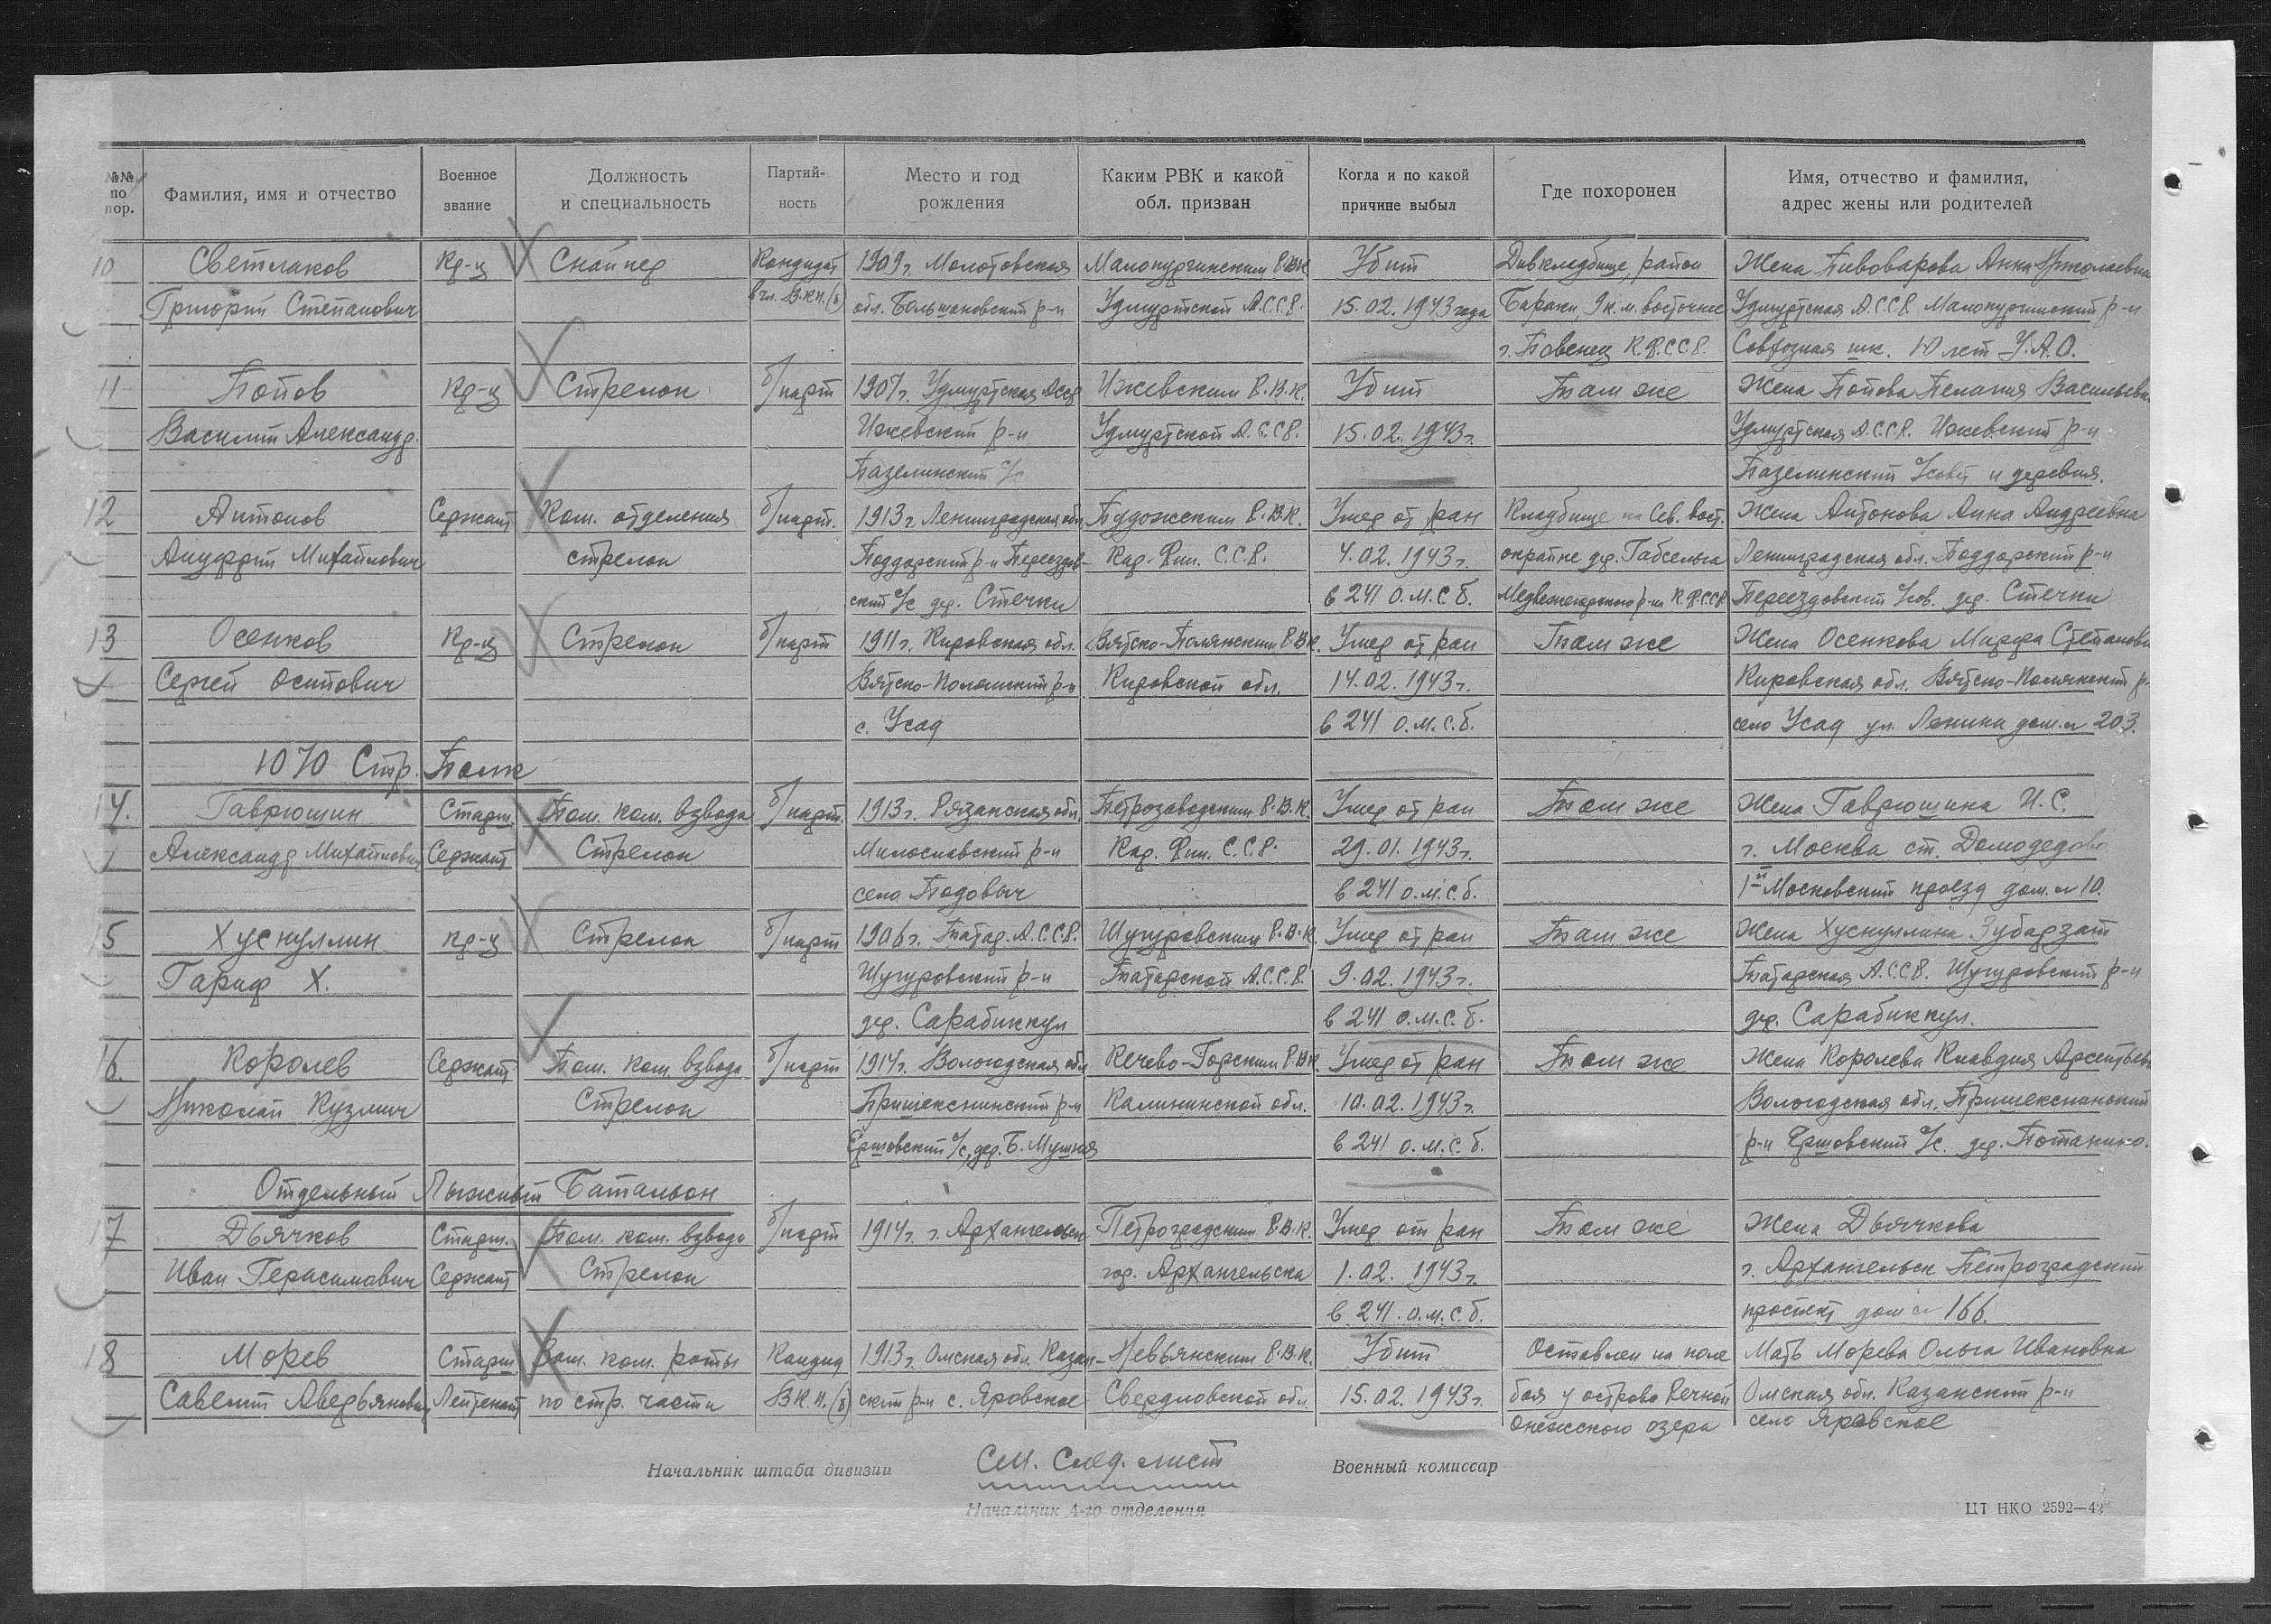 №№ по пор. | Фамилия, имя и отчество | Военное звание | Должность и специальность | Партий-ность | Место и год рождения | Каким РВК и какой обл. призван | Когда и по какой причине выбыл | Где похоронен | Имя, отчество и фамилия, адрес жены или родителей
10 | Светлаков | Кр-ц | Снайпер | Кандидат | 1909г. Молотовская | Малопургинским Р.В.К. | Убит | Дивкладбище, район | Жена Пивоварова Анна Николаевна
Григорий Степанович | | | в чл. В.К.П.(б) | обл. Большаковский р-н | Удмуртской А.С.С.Р. | 15.02.1943 года | Бараки 9 к.м. восточнее | Удмуртская А.С.С.Р. Малопургинский р-н
г. Повенец К.Ф.С.С.Р. | Совхозная шк. 10 лет У.А.О.
11 | Попов | Кр-ц | Стрелок | б/парт | 1907г. Удмуртская АССР | Ижевским Р.В.К. | Убит | Там же | Жена Попова Пелагия Васильевн.
Василий Александр. | | | | Ижевский р-н | Удмуртской А.С.С.Р. | 15.02.1943г. | | Удмуртская А.С.С.Р. Ижевский р-н
Пазелинский с/с | Пазелинский с/совет и деревня.
12 | Антонов | Сержант | Ком. отделения | б/парт. | 1913г. Ленинградская обл. | Пудожским Р.В.К. | Умер от ран | Кладбище на Сев. вост. | Жена Антонова Анна Андреевна
Ануфрий Михайлович | | стрелок | | Поддорский р-н Переездов- | Кар. Фин. С.С.Р. | 4.02.1943г. | окраине дер. Габсельга | Ленинградская обл. Поддорский р-н
ский с/с дер. Стечки | в 241 о.м.с.б. | Медвежьегорского р-на К.Ф.С.С.Р. | Переездовский с/сов. дер. Стечки
13 | Осенков | Кр-ц | Стрелок | б/парт | 1911г. Кировская обл. | Вятско-Полянским Р.В.К. | Умер от ран | Там же | Жена Осенкова Марфа Степановн
Сергей Осипович | | | | Вятско-Полянский р-н | Кировской обл. | 14.02.1943г. | | Кировская обл. Вятско-Полянский р-
с. Усад | в 241 о.м.с.б. | село Усад ул. Ленина дом.№ 203.
1070 Стр. Полк
14. | Гаврюшин | Старш. | Пом. ком. взвода | б/парт. | 1913г. Рязанская обл. | Петрозаводским Р.В.К. | Умер от ран | Там же | Жена Гаврюшина И.С.
Александр Михайлович | Сержант | Стрелок | | Милославский р-н | Кар. Фин. С.С.Р. | 29.01.1943г. | | г. Москва ст. Домодедово
село Подовыч | в 241 о.м.с.б. | 1й Московский проезд дом.№ 10.
15 | Хуснуллин | кр-ц | Стрелок | б/парт | 1906г. Татар. А.С.С.Р. | Шугуровским Р.В.К. | Умер от ран | Там же | Жена Хуснуллина Зубарзат
Гариф Х. | | | | Шугуровский р-н | Татарской А.С.С.Р. | 9.02.1943г. | | Татарская А.С.С.Р. Шугуровский р-н
дер. Сарабиккул | в 241 о.м.с.б. | дер. Сарабиккул.
16. | Королев | Сержант | Пом. ком. взвода | б/парт | 1914г. Вологодская обл | Кечево-Горским Р.В.К. | Умер от ран | Там же | Жена Королева Клавдия Арсентьевн
Николай Кузмич | | Стрелок | | Пришекснинский р-н | Калининской обл. | 10.02.1943г. | | Вологодская обл. Пришекснинский
Ершовский с/с, дер. Б. Мушня | в 241 о.м.с.б. | р-н Ершовский с/с. дер. Потанино.
Отдельный Лыжный Батальон
17 | Дьячков | Старш. | Пом. ком. взвода | б/парт | 1914г. г. Архангельск | Петроградским Р.В.К. | Умер от ран | Там же | Жена Дьячкова
Иван Герасимович | Сержант | Стрелок | | | гор. Архангельска | 1.02.1943г. | | г. Архангельск Петроградский
в 241. о.м.с.б. | проспект дом № 166.
18 | Морев | Старш | Зам. ком. роты | Кандид | 1913г. Омская обл. Казан- | Невьянским Р.В.К. | Убит | Оставлен на поле | Мать Морева Ольга Ивановна
Савелий Аверьянович | Лейтенант | по стр. части | В.К.П.(б) | ский р-н с. Яровское | Свердловской обл. | 15.02.1943г. | боя у острова Речной | Омская обл. Казанский р-н
Онежского озера | село Яровское
Начальник штаба дивизии | См. след. лист | Военный комиссар
Начальник 4-го отделения | ЦТ НКО 2592—42